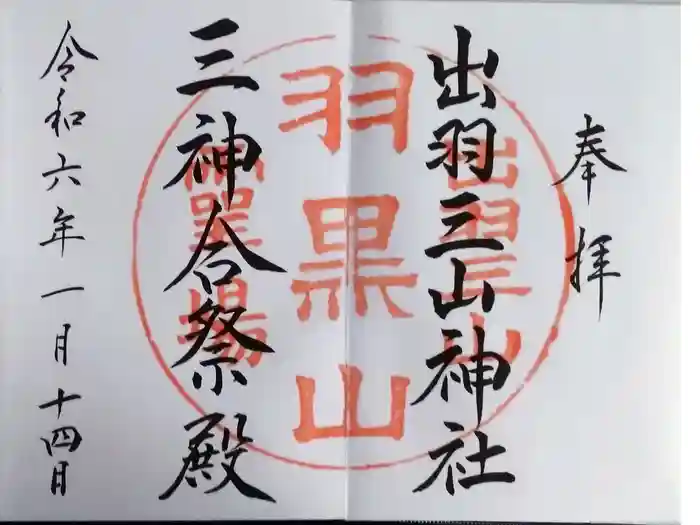 奉拝
出羽三山神社
三神合祭殿
令和六年一月十四日
出羽三山
羽黒山